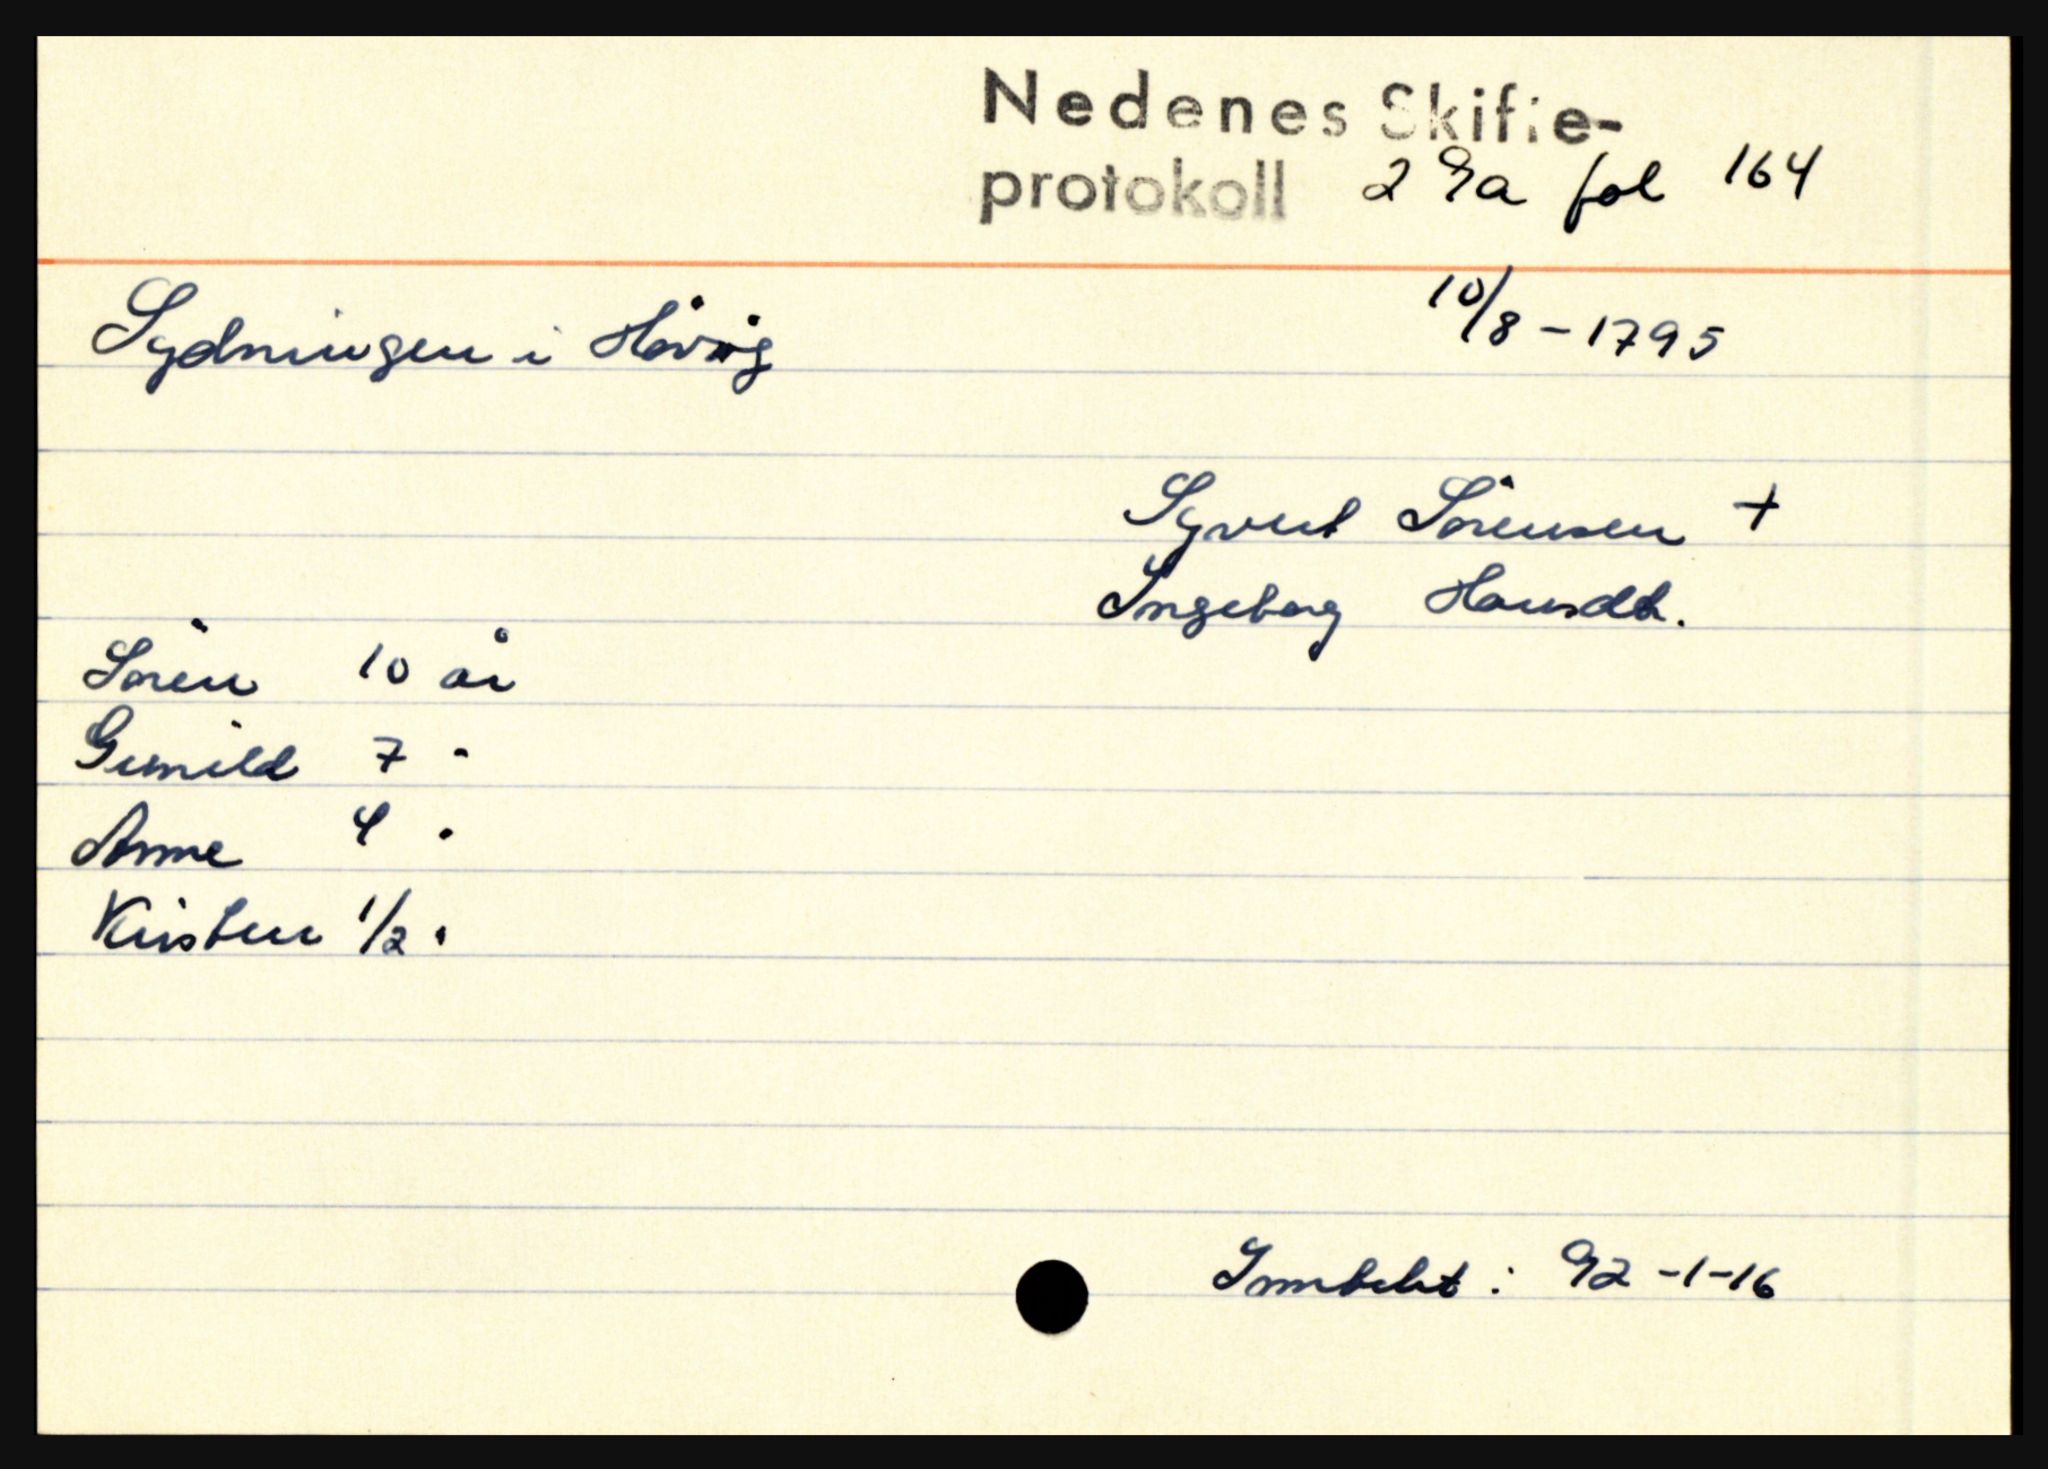 Nedenes Skifte-
protokoll 2 9a fol 164
Sydningen i Høvåg 10/8 - 1795
Syvert Sørensen +
Ingeborg Hansdt.
Søren 10 år
Gunild 7 "
Anne 4 "
Kirsten 1/2 "
Inntekt : 92 - 1 - 16